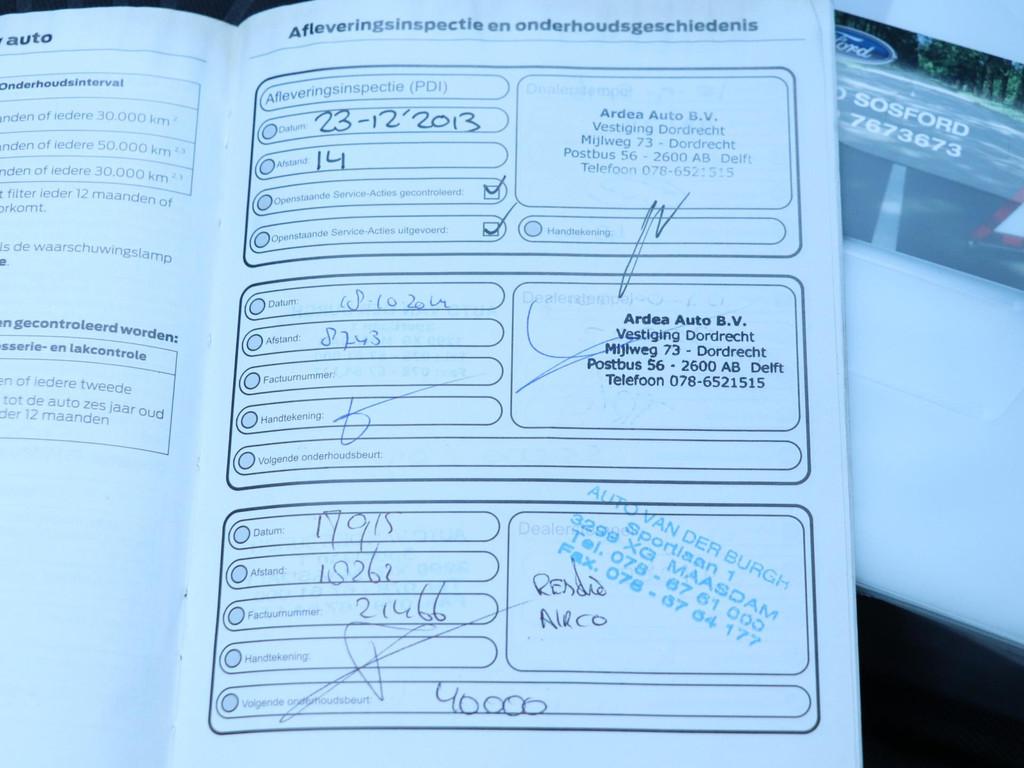 auto
Onderhoudsinterval
anden of iedere 30.000 km 2
anden of iedere 50.000 km 2,3
nden of iedere 30.000 km 2,3
t filter ieder 12 maanden of
orkomt.
ls de waarschuwingslamp
e.
en gecontroleerd worden:
sserie- en lakcontrole
en of iedere tweede
tot de auto zes jaar oud
der 12 maanden
Afleveringsinspectie en onderhoudsgeschiedenis
Afleveringsinspectie (PDI)
Datum: 23-12'2013
Afstand: 14
Openstaande Service-Acties gecontroleerd:
Openstaande Service-Acties uitgevoerd:
Dealerstempel
Ardea Auto B.V.
Vestiging Dordrecht
Mijlweg 73 - Dordrecht
Postbus 56 - 2600 AB Delft
Telefoon 078-6521515
Handtekening:
Datum:
Afstand: 8743
Factuurnummer:
Handtekening:
Volgende onderhoudsbeurt:
Dealerstempel
Ardea Auto B.V.
Vestiging Dordrecht
Mijlweg 73 - Dordrecht
Postbus 56 - 2600 AB Delft
Telefoon 078-6521515
Datum: 17 9 15
Afstand: 18262
Factuurnummer: 21466
Handtekening:
Volgende onderhoudsbeurt: 40000
AUTO VAN DER BURGH
Sportlaan 1
3299 XG MAASDAM
Tel. 078 - 67 61 000
Fax. 078 - 67 64 177
AIRCO
Ford
SOSFORD
7673673